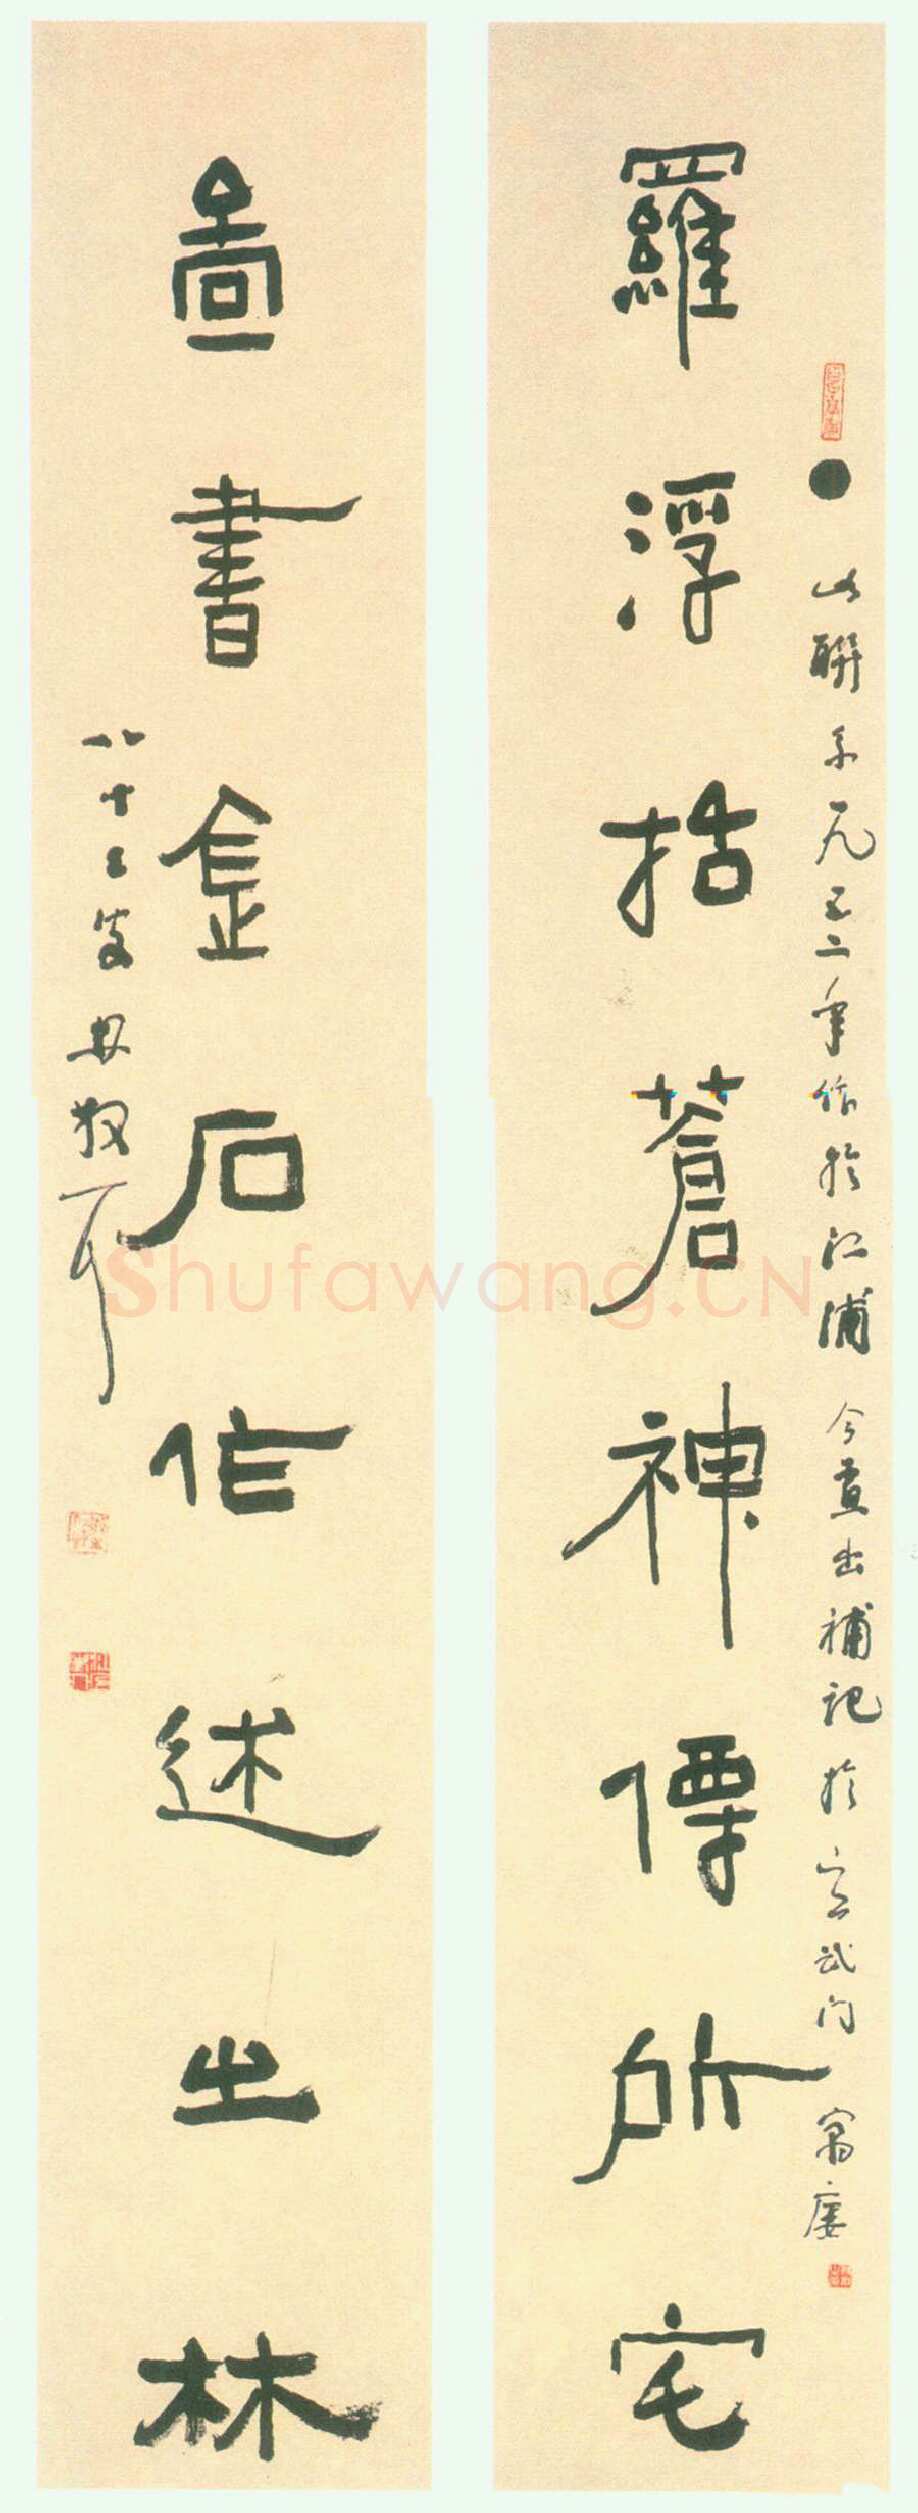 羅浮括蒼神僊所宅
此聯予一九五二年作於江浦 今查出補記於玄武門 寓廔
圖書金石作述之林
八十二叟 林散耳
Shufawang.CN